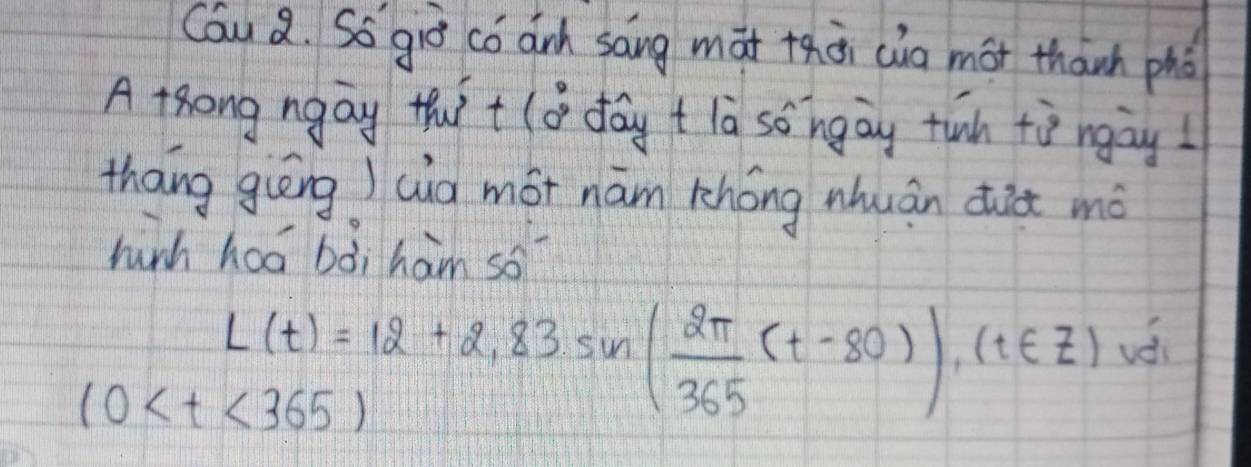 Câu 2. Số giờ có ánh sáng mặt trời của một thành phố
A trong ngày thứ t (ở đây t là số ngày tính từ ngày 1
tháng giêng) của một năm không nhuận được mô
hình hoá bởi hàm số
L(t) = 12 + 2,83.sin(2π/365 (t - 80)), (t ∈ Z) với
(0 < t < 365)